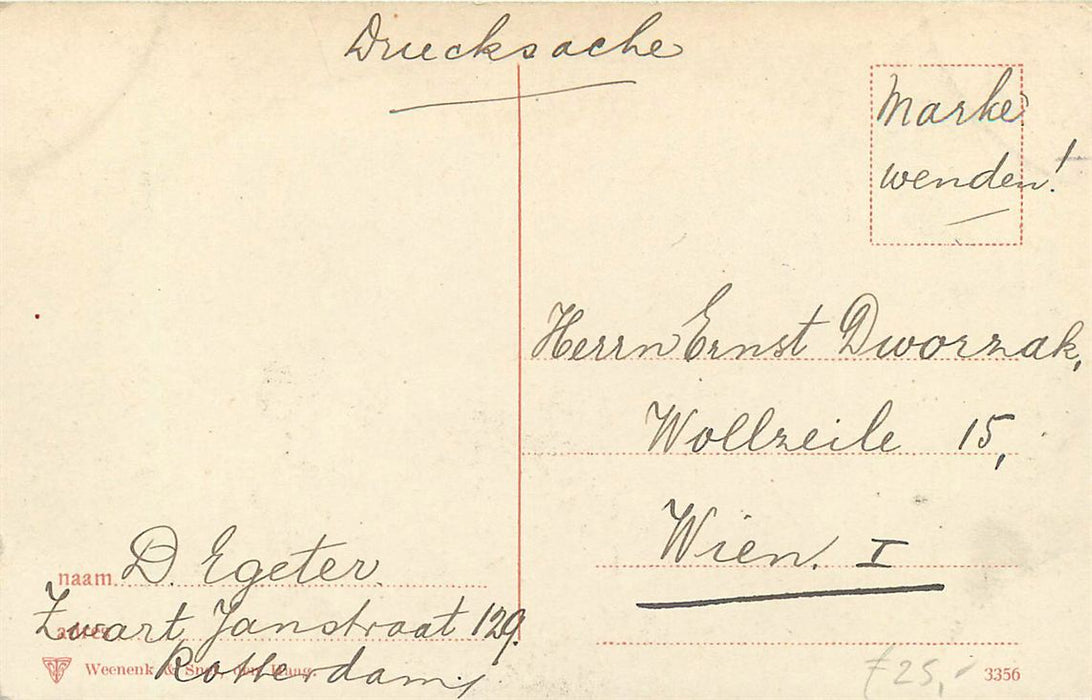 Drucksache
Marke
wenden!
Herrn Ernst Dworzak,
Wollzeile 15,
Wien. I
naam D. Egeter.
adres Zwart Janstraat 129.
Rotterdam
Weenenk & Snel, den Haag.
f 25,-
3356